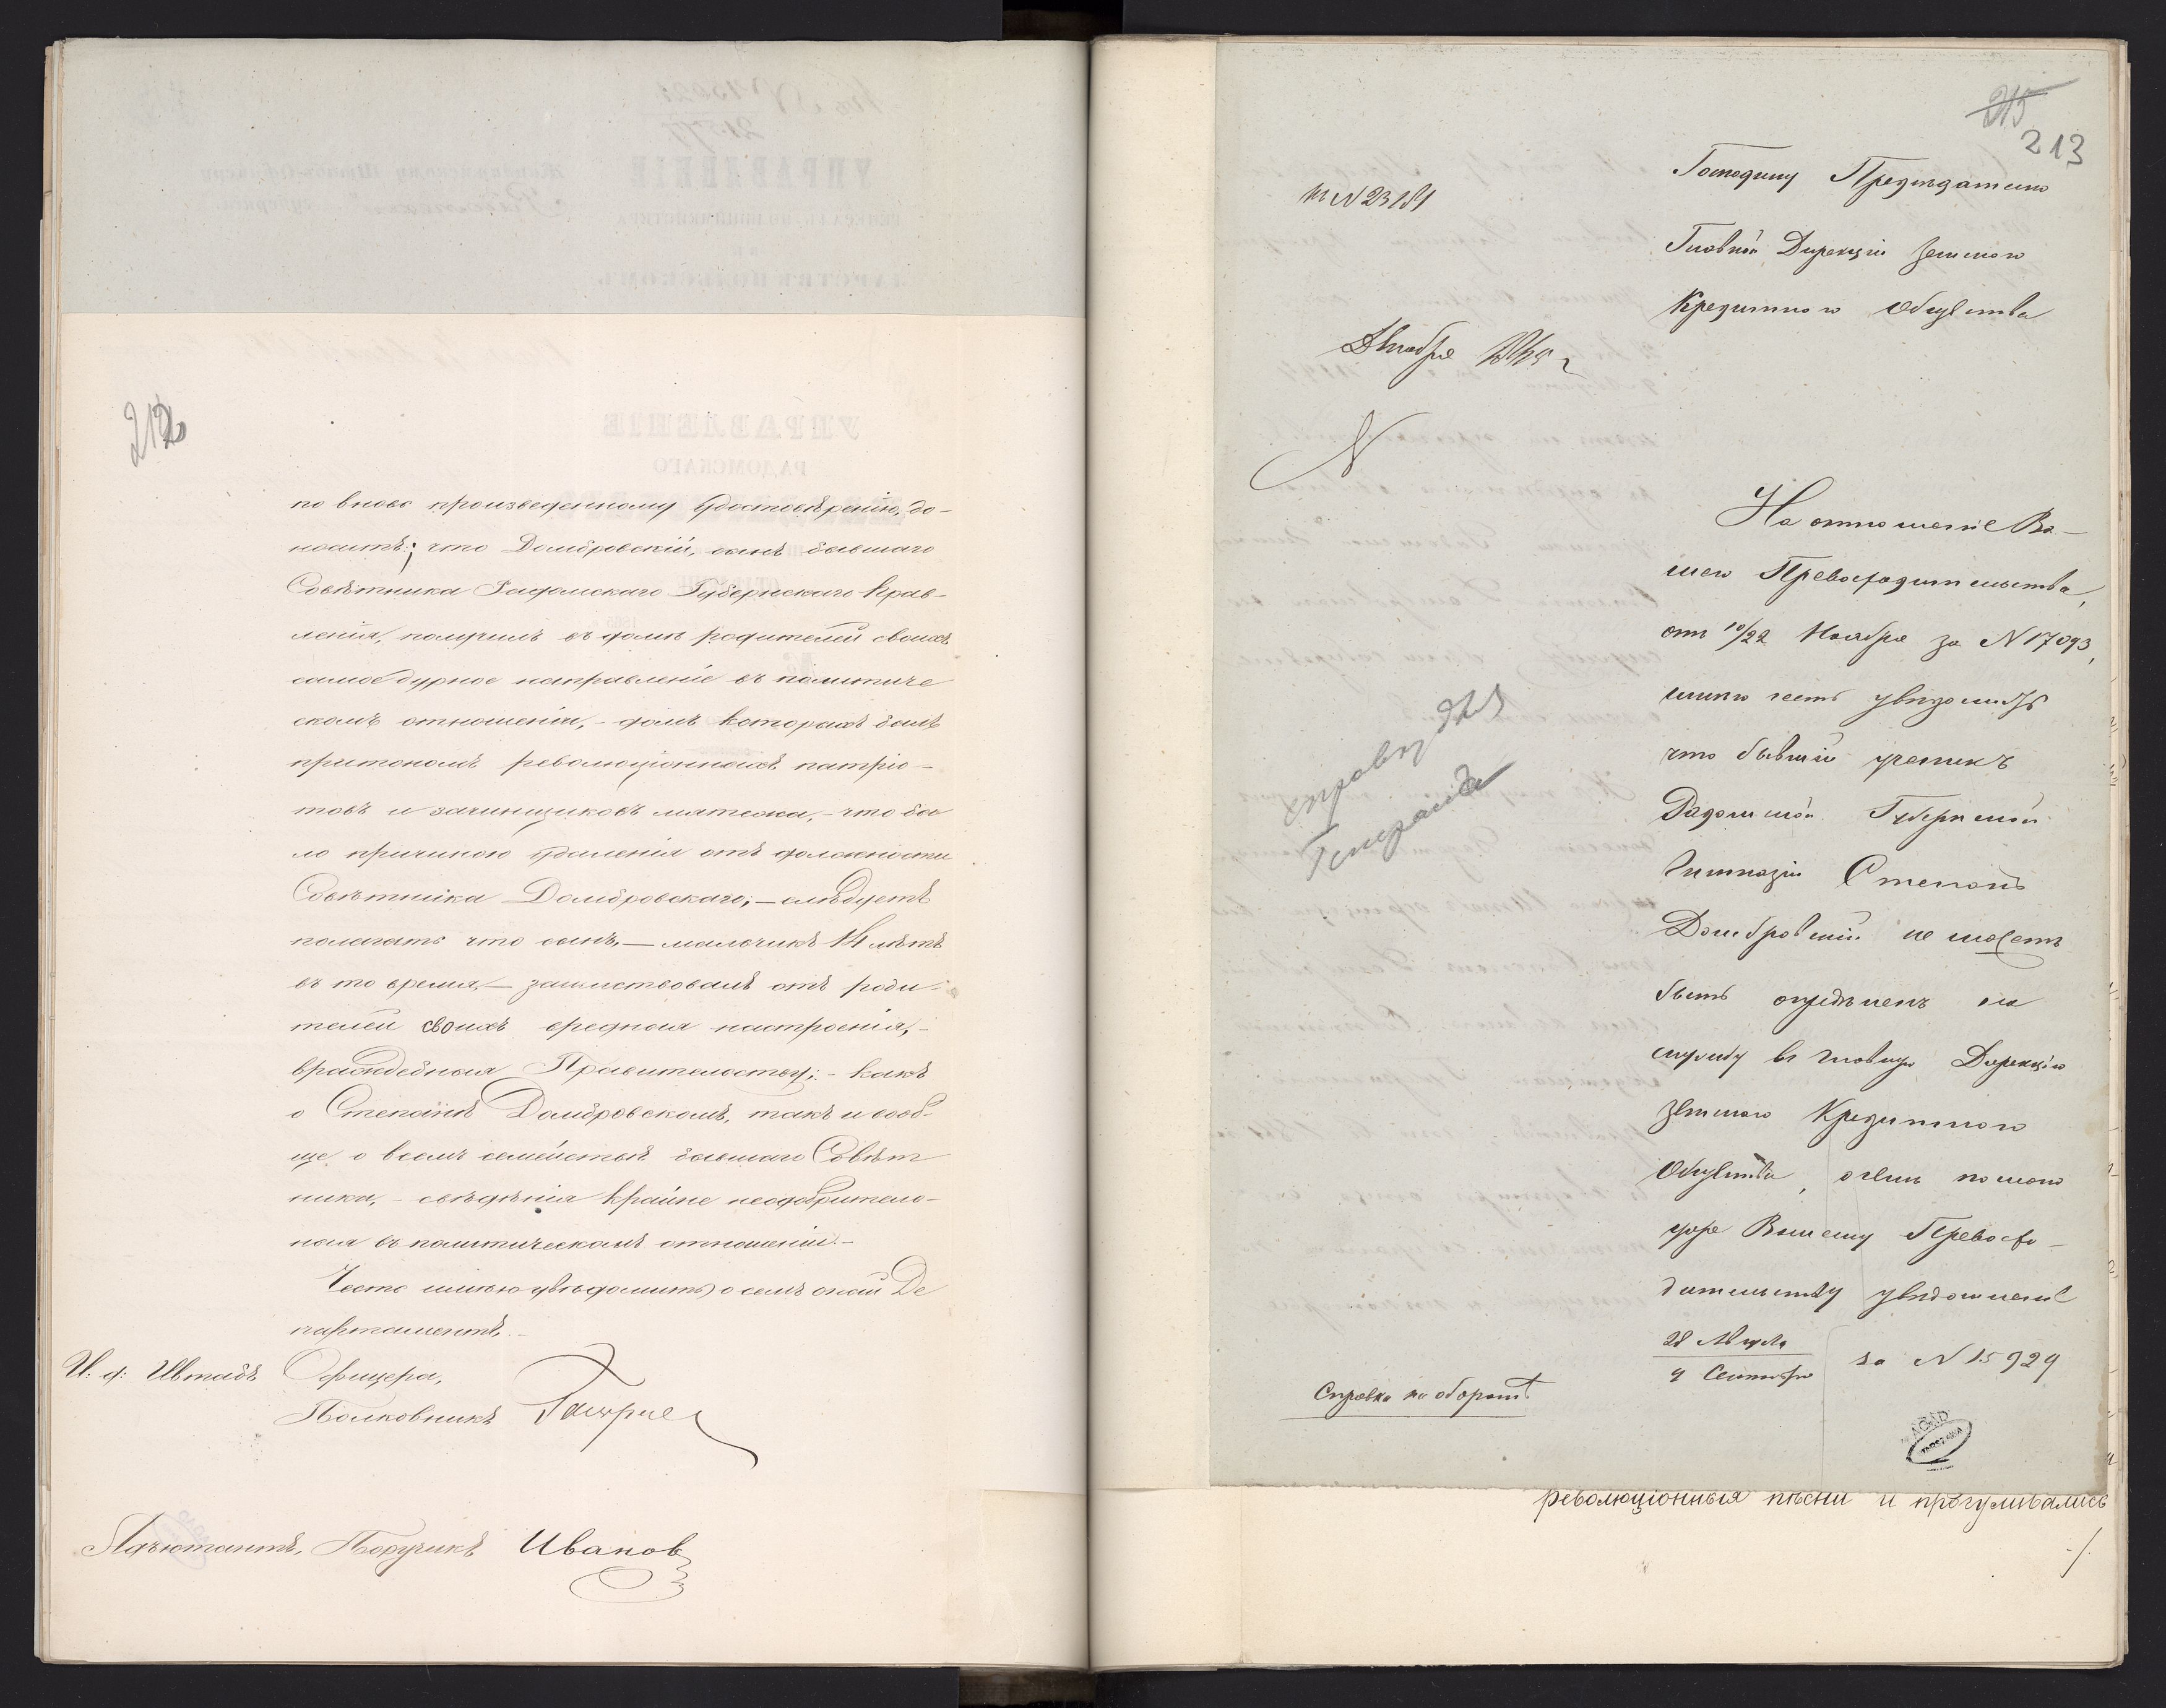 212
по вновь произведенному удостовѣренію, до-
носитъ: что Домбровскій, сынъ бывшаго
Совѣтника Радомскаго Губернскаго Прав-
ленія, получилъ въ домѣ родителей своихъ
самое дурное направленіе въ политиче
скомъ отношеніи, - домъ которыхъ былъ
притономъ революціонныхъ патріо-
товъ и зачинщиковъ мятежа, - что бы
ло причиною удаленія отъ должности
Совѣтника Домбровскаго; - слѣдуетъ
полагать что сынъ, - мальчикъ 14 лѣтъ
въ то время, - заимствовалъ отъ роди-
телей своихъ вредныя настроенія, -
враждебныя Правительству; - какъ
о Степанѣ Домбровскомъ, такъ и вооб-
ще о всемъ семействѣ бывшаго Совѣт
ника, - свѣдѣнія крайне неодобритель-
ныя въ политическомъ отношеніи. -
Честь имѣю увѣдомить о семъ оный Де
партаментъ. -
И: д: Штабъ Офицера,
Полковникъ
Адъютантъ, Поручикъ Ивановъ
215
213
кг N 23181
Господину Предсѣдателю
Главной Дирекціи Земскаго
Кредитнаго Общества
Декабря
N
На отношеніе Ва-
шего Превосходительства,
отъ 10/22 Ноября за N 17093,
имѣю честь увѣдомить
что бывшій ученикъ
Радомской Губернской
Гимназіи Степанъ
Домбровскій не можетъ
быть опредѣленъ на
службу въ Главную Дирекцію
Земскаго Кредитнаго
Общества, о чемъ
Вашему Превосхо-
дительству увѣдомленіе
28 Августа
9 Сентября за N 15929
Справка на оборотѣ
AGAD
WARSZAWA
революціонныя пѣсни и прогуливались
./.